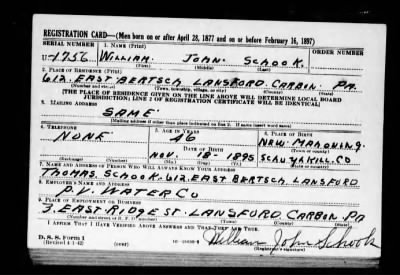 REGISTRATION CARD—(Men born on or after April 28, 1877 and on or before February 16, 1897)
SERIAL NUMBER 1. NAME (Print) ORDER NUMBER
U-1756 WILLIAM JOHN SCHOOK
(First) (Middle) (Last)
2. PLACE OF RESIDENCE (Print)
612. EAST BERTSCH LANSFORD. CARBON. PA.
(Number and street) (Town, township, village, or city) (County) (State)
[THE PLACE OF RESIDENCE GIVEN ON THE LINE ABOVE WILL DETERMINE LOCAL BOARD
JURISDICTION; LINE 2 OF REGISTRATION CERTIFICATE WILL BE IDENTICAL]
3. MAILING ADDRESS
SAME.
[Mailing address if other than place indicated on line 2. If same insert word same]
4. TELEPHONE 5. AGE IN YEARS 6. PLACE OF BIRTH
NONE 46 NEW MAHONING.
DATE OF BIRTH (Town or county)
NOV. 18- 1895 SCHUYLKILL. CO
(Exchange) (Number) (Mo.) (Day) (Yr.) (State or country)
7. NAME AND ADDRESS OF PERSON WHO WILL ALWAYS KNOW YOUR ADDRESS
THOMAS. SCHOOK. 612. EAST BERTSCH. LANSFORD
8. EMPLOYER'S NAME AND ADDRESS
P.V. WATER CO
9. PLACE OF EMPLOYMENT OR BUSINESS
3. EAST RIDGE ST. LANSFORD. CARBON. PA
(Number and street or R. F. D. number) (Town) (County) (State)
I AFFIRM THAT I HAVE VERIFIED ABOVE ANSWERS AND THAT THEY ARE TRUE.
D. S. S. FORM 1
(Revised 4-1-42) (over) William John Schook